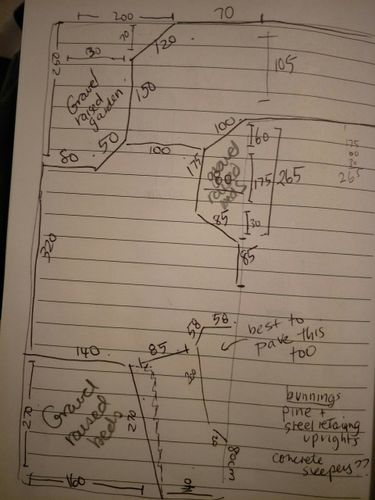 200
70
70
120
30
250
105
150
Gravel
raised
garden
50
80
100
100
60
175
gravel
raised
beds
175
265
175
60
30
265
85
30
85
320
58
58
best to
pave this
too
140
85
270
Gravel
raised
beds
270
80cm
160
bunnings
pine +
steel retaing
uprights
concrete
sleepers??